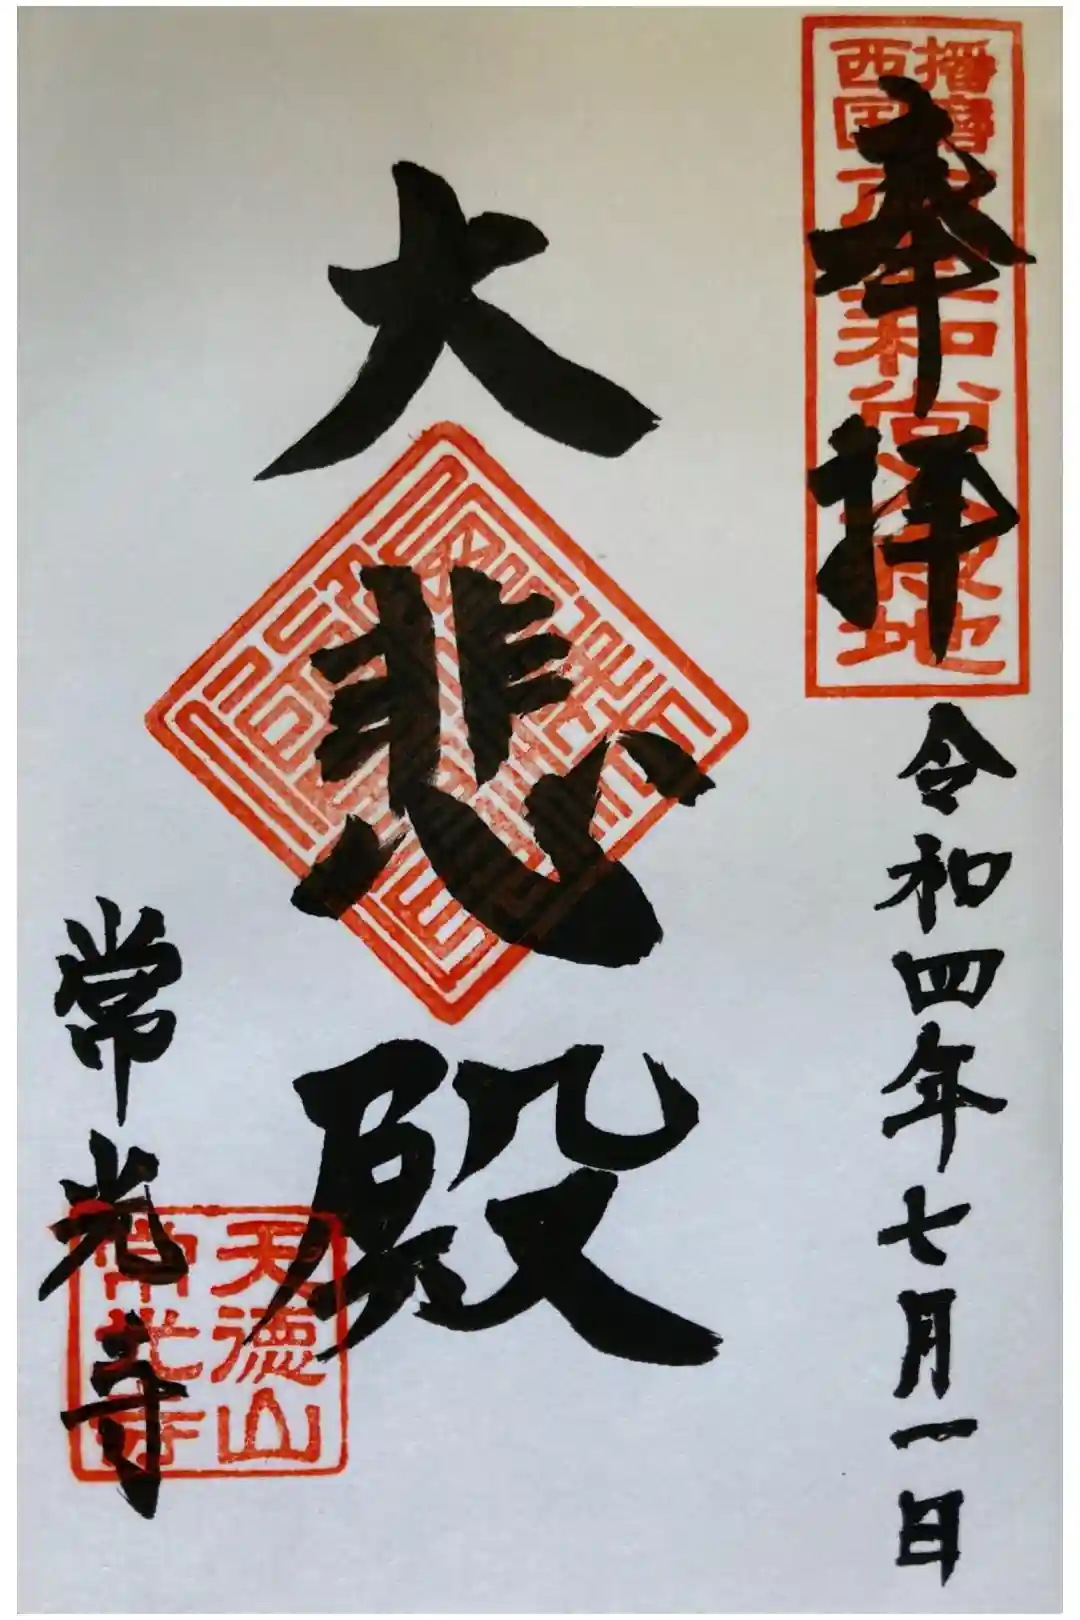 奉拝
播磨
西国
和尚
地
令和四年七月一日
大悲殿
常光寺
天徳山
常光寺